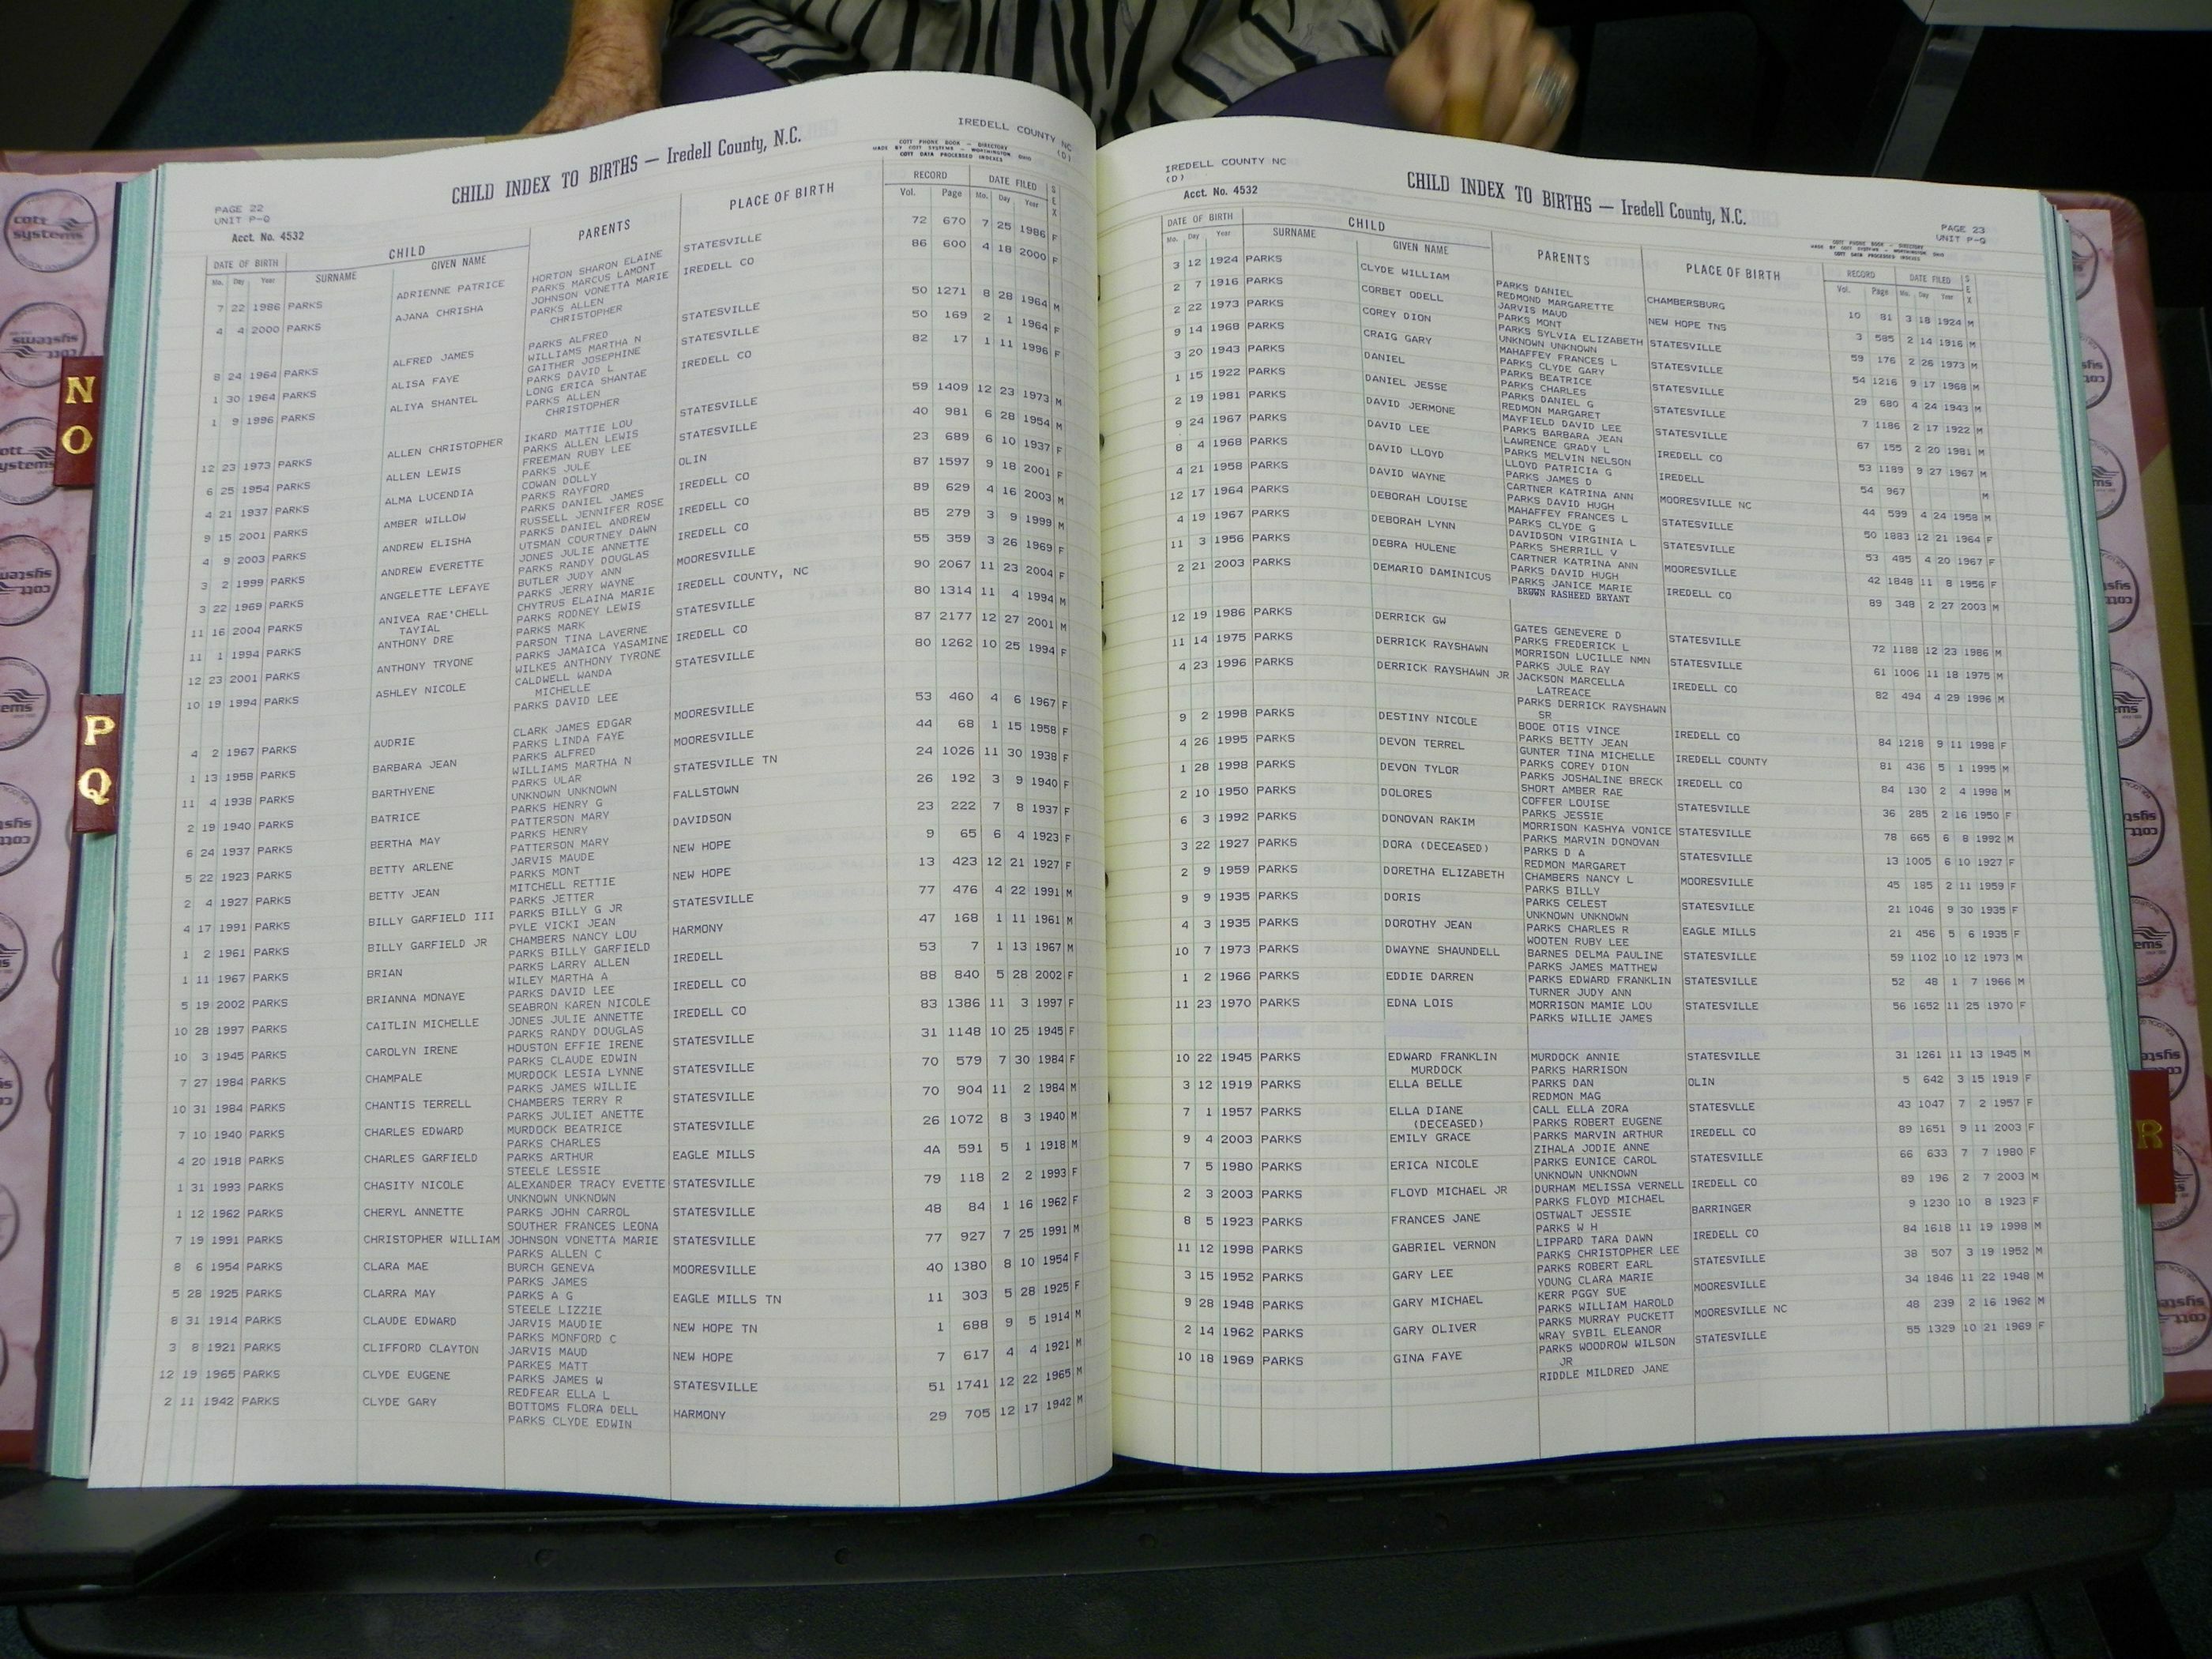 IREDELL COUNTY NC
(D)
CHILD INDEX TO BIRTHS — Iredell County, N.C.
COTT PHONE BOOK — DIRECTORY
MADE BY COTT SYSTEMS — WORTHINGTON, OHIO
COTT DATA PROCESSED INDEXES
PAGE 22
UNIT P-Q
Acct. No. 4532
DATE OF BIRTH CHILD PARENTS PLACE OF BIRTH RECORD DATE FILED SEX
Mo. Day Year SURNAME GIVEN NAME Vol. Page Mo. Day Year
7 22 1986 PARKS ADRIENNE PATRICE HORTON SHARON ELAINE STATESVILLE 72 670 7 25 1986 F
PARKS MARCUS LAMONT
4 4 2000 PARKS AJANA CHRISHA JOHNSON VONETTA MARIE IREDELL CO 86 600 4 18 2000 F
PARKS ALLEN
CHRISTOPHER
8 24 1964 PARKS ALFRED JAMES PARKS ALFRED STATESVILLE 50 1271 8 28 1964 M
WILLIAMS MARTHA N
1 30 1964 PARKS ALISA FAYE GAITHER JOSEPHINE STATESVILLE 50 169 2 1 1964 F
PARKS DAVID L
1 9 1996 PARKS ALIYA SHANTEL LONG ERICA SHANTAE IREDELL CO 82 17 1 11 1996 F
PARKS ALLEN
CHRISTOPHER
12 23 1973 PARKS ALLEN CHRISTOPHER IKARD MATTIE LOU STATESVILLE 59 1409 12 23 1973 M
PARKS ALLEN LEWIS
6 25 1954 PARKS ALLEN LEWIS FREEMAN RUBY LEE STATESVILLE 40 981 6 28 1954 M
PARKS JULE
4 21 1937 PARKS ALMA LUCENDIA COWAN DOLLY OLIN 23 689 6 10 1937 F
PARKS RAYFORD
9 15 2001 PARKS AMBER WILLOW PARKS DANIEL JAMES IREDELL CO 87 1597 9 18 2001 F
RUSSELL JENNIFER ROSE
4 9 2003 PARKS ANDREW ELISHA PARKS DANIEL ANDREW IREDELL CO 89 629 4 16 2003 M
UTSMAN COURTNEY DAWN
3 2 1999 PARKS ANDREW EVERETTE JONES JULIE ANNETTE IREDELL CO 85 279 3 9 1999 M
PARKS RANDY DOUGLAS
3 22 1969 PARKS ANGELETTE LEFAYE BUTLER JUDY ANN MOORESVILLE 55 359 3 26 1969 F
PARKS JERRY WAYNE
11 16 2004 PARKS ANIVEA RAE'CHELL CHYTRUS ELAINA MARIE IREDELL COUNTY, NC 90 2067 11 23 2004 F
TAYIAL PARKS RODNEY LEWIS
11 1 1994 PARKS ANTHONY DRE PARKS MARK STATESVILLE 80 1314 11 4 1994 M
PARSON TINA LAVERNE
12 23 2001 PARKS ANTHONY TRYONE PARKS JAMAICA YASAMINE IREDELL CO 87 2177 12 27 2001 M
WILKES ANTHONY TYRONE
10 19 1994 PARKS ASHLEY NICOLE CALDWELL WANDA STATESVILLE 80 1262 10 25 1994 F
MICHELLE
PARKS DAVID LEE
4 2 1967 PARKS AUDRIE CLARK JAMES EDGAR MOORESVILLE 53 460 4 6 1967 F
PARKS LINDA FAYE
1 13 1958 PARKS BARBARA JEAN PARKS ALFRED MOORESVILLE 44 68 1 15 1958 F
WILLIAMS MARTHA N
11 4 1938 PARKS BARTHYENE PARKS ULAR STATESVILLE TN 24 1026 11 30 1938 F
UNKNOWN UNKNOWN
2 19 1940 PARKS BATRICE PARKS HENRY G FALLSTOWN 26 192 3 9 1940 F
PATTERSON MARY
6 24 1937 PARKS BERTHA MAY PARKS HENRY DAVIDSON 23 222 7 8 1937 F
PATTERSON MARY
5 22 1923 PARKS BETTY ARLENE JARVIS MAUDE NEW HOPE 9 65 6 4 1923 F
PARKS MONT
2 4 1927 PARKS BETTY JEAN MITCHELL RETTIE NEW HOPE 13 423 12 21 1927 F
PARKS JETTER
4 17 1991 PARKS BILLY GARFIELD III PARKS BILLY G JR STATESVILLE 77 476 4 22 1991 M
PYLE VICKI JEAN
1 2 1961 PARKS BILLY GARFIELD JR CHAMBERS NANCY LOU HARMONY 47 168 1 11 1961 M
PARKS BILLY GARFIELD
1 11 1967 PARKS BRIAN PARKS LARRY ALLEN IREDELL 53 7 1 13 1967 M
WILEY MARTHA A
5 19 2002 PARKS BRIANNA MONAYE PARKS DAVID LEE IREDELL CO 88 840 5 28 2002 F
SEABRON KAREN NICOLE
10 28 1997 PARKS CAITLIN MICHELLE JONES JULIE ANNETTE IREDELL CO 83 1386 11 3 1997 F
PARKS RANDY DOUGLAS
10 3 1945 PARKS CAROLYN IRENE HOUSTON EFFIE IRENE STATESVILLE 31 1148 10 25 1945 F
PARKS CLAUDE EDWIN
7 27 1984 PARKS CHAMPALE MURDOCK LESIA LYNNE STATESVILLE 70 579 7 30 1984 F
PARKS JAMES WILLIE
10 31 1984 PARKS CHANTIS TERRELL CHAMBERS TERRY R STATESVILLE 70 904 11 2 1984 M
PARKS JULIET ANETTE
7 10 1940 PARKS CHARLES EDWARD MURDOCK BEATRICE STATESVILLE 26 1072 8 3 1940 M
PARKS CHARLES
4 20 1918 PARKS CHARLES GARFIELD PARKS ARTHUR EAGLE MILLS 4A 591 5 1 1918 M
STEELE LESSIE
1 31 1993 PARKS CHASITY NICOLE ALEXANDER TRACY EVETTE STATESVILLE 79 118 2 2 1993 F
UNKNOWN UNKNOWN
1 12 1962 PARKS CHERYL ANNETTE PARKS JOHN CARROL STATESVILLE 48 84 1 16 1962 F
SOUTHER FRANCES LEONA
7 19 1991 PARKS CHRISTOPHER WILLIAM JOHNSON VONETTA MARIE STATESVILLE 77 927 7 25 1991 M
PARKS ALLEN C
8 6 1954 PARKS CLARA MAE BURCH GENEVA MOORESVILLE 40 1380 8 10 1954 F
PARKS JAMES
5 28 1925 PARKS CLARRA MAY PARKS A G EAGLE MILLS TN 11 303 5 28 1925 F
STEELE LIZZIE
8 31 1914 PARKS CLAUDE EDWARD JARVIS MAUDIE NEW HOPE TN 1 688 9 5 1914 M
PARKS MONFORD C
3 8 1921 PARKS CLIFFORD CLAYTON JARVIS MAUD NEW HOPE 7 617 4 4 1921 M
PARKES MATT
12 19 1965 PARKS CLYDE EUGENE PARKS JAMES W STATESVILLE 51 1741 12 22 1965 M
REDFEAR ELLA L
2 11 1942 PARKS CLYDE GARY BOTTOMS FLORA DELL HARMONY 29 705 12 17 1942 M
PARKS CLYDE EDWIN
IREDELL COUNTY NC
(D)
Acct. No. 4532
CHILD INDEX TO BIRTHS — Iredell County, N.C.
PAGE 23
UNIT P-Q
COTT PHONE BOOK — DIRECTORY
MADE BY COTT SYSTEMS — WORTHINGTON, OHIO
COTT DATA PROCESSED INDEXES
DATE OF BIRTH CHILD PARENTS PLACE OF BIRTH RECORD DATE FILED SEX
Mo. Day Year SURNAME GIVEN NAME Vol. Page Mo. Day Year
3 12 1924 PARKS CLYDE WILLIAM PARKS DANIEL CHAMBERSBURG 10 81 3 18 1924 M
REDMOND MARGARETTE
2 7 1916 PARKS CORBET ODELL JARVIS MAUD NEW HOPE TNS 3 585 2 14 1916 M
PARKS MONT
2 22 1973 PARKS COREY DION PARKS SYLVIA ELIZABETH STATESVILLE 59 176 2 26 1973 M
UNKNOWN UNKNOWN
9 14 1968 PARKS CRAIG GARY MAHAFFEY FRANCES L STATESVILLE 54 1216 9 17 1968 M
PARKS CLYDE GARY
3 20 1943 PARKS DANIEL PARKS BEATRICE STATESVILLE 29 680 4 24 1943 M
PARKS CHARLES
1 15 1922 PARKS DANIEL JESSE PARKS DANIEL G STATESVILLE 7 1186 2 17 1922 M
REDMON MARGARET
2 19 1981 PARKS DAVID JERMONE MAYFIELD DAVID LEE IREDELL CO 67 155 2 20 1981 M
PARKS BARBARA JEAN
9 24 1967 PARKS DAVID LEE LAWRENCE GRADY L IREDELL 53 1189 9 27 1967 M
PARKS MELVIN NELSON
8 4 1968 PARKS DAVID LLOYD LLOYD PATRICIA G MOORESVILLE NC 54 967 M
PARKS JAMES D
4 21 1958 PARKS DAVID WAYNE CARTNER KATRINA ANN STATESVILLE 44 599 4 24 1958 M
PARKS DAVID HUGH
12 17 1964 PARKS DEBORAH LOUISE MAHAFFEY FRANCES L STATESVILLE 50 1883 12 21 1964 F
PARKS CLYDE G
4 19 1967 PARKS DEBORAH LYNN DAVIDSON VIRGINIA L MOORESVILLE 53 485 4 20 1967 F
PARKS SHERRILL V
11 3 1956 PARKS DEBRA HULENE CARTNER KATRINA ANN IREDELL CO 42 1848 11 8 1956 F
PARKS DAVID HUGH
2 21 2003 PARKS DEMARIO DAMINICUS PARKS JANICE MARIE 89 348 2 27 2003 M
BROWN RASHEED BRYANT
12 19 1986 PARKS DERRICK GW GATES GENEVERE D STATESVILLE 72 1188 12 23 1986 M
PARKS FREDERICK L
11 14 1975 PARKS DERRICK RAYSHAWN MORRISON LUCILLE NMN STATESVILLE 61 1006 11 18 1975 M
PARKS JULE RAY
4 23 1996 PARKS DERRICK RAYSHAWN JR JACKSON MARCELLA IREDELL CO 82 494 4 29 1996 M
LATREACE
PARKS DERRICK RAYSHAWN
SR
9 2 1998 PARKS DESTINY NICOLE BOOE OTIS VINCE IREDELL CO 84 1218 9 11 1998 F
PARKS BETTY JEAN
4 26 1995 PARKS DEVON TERREL GUNTER TINA MICHELLE IREDELL COUNTY 81 436 5 1 1995 M
PARKS COREY DION
1 28 1998 PARKS DEVON TYLOR PARKS JOSHALINE BRECK IREDELL CO 84 130 2 4 1998 M
SHORT AMBER RAE
2 10 1950 PARKS DOLORES COFFER LOUISE STATESVILLE 36 285 2 16 1950 F
PARKS JESSIE
6 3 1992 PARKS DONOVAN RAKIM MORRISON KASHYA VONICE STATESVILLE 78 665 6 8 1992 M
PARKS MARVIN DONOVAN
3 22 1927 PARKS DORA (DECEASED) PARKS D A STATESVILLE 13 1005 6 10 1927 F
REDMON MARGARET
2 9 1959 PARKS DORETHA ELIZABETH CHAMBERS NANCY L MOORESVILLE 45 185 2 11 1959 F
PARKS BILLY
9 9 1935 PARKS DORIS PARKS CELEST STATESVILLE 21 1046 9 30 1935 F
UNKNOWN UNKNOWN
4 3 1935 PARKS DOROTHY JEAN PARKS CHARLES R EAGLE MILLS 21 456 5 6 1935 F
WOOTEN RUBY LEE
10 7 1973 PARKS DWAYNE SHAUNDELL BARNES DELMA PAULINE STATESVILLE 59 1102 10 12 1973 M
PARKS JAMES MATTHEW
1 2 1966 PARKS EDDIE DARREN PARKS EDWARD FRANKLIN STATESVILLE 52 48 1 7 1966 M
TURNER JUDY ANN
11 23 1970 PARKS EDNA LOIS MORRISON MAMIE LOU STATESVILLE 56 1652 11 25 1970 F
PARKS WILLIE JAMES
10 22 1945 PARKS EDWARD FRANKLIN MURDOCK ANNIE STATESVILLE 31 1261 11 13 1945 M
MURDOCK PARKS HARRISON
3 12 1919 PARKS ELLA BELLE PARKS DAN OLIN 5 642 3 15 1919 F
REDMON MAG
7 1 1957 PARKS ELLA DIANE CALL ELLA ZORA STATESVLLE 43 1047 7 2 1957 F
(DECEASED) PARKS ROBERT EUGENE
9 4 2003 PARKS EMILY GRACE PARKS MARVIN ARTHUR IREDELL CO 89 1651 9 11 2003 F
ZIHALA JODIE ANNE
7 5 1980 PARKS ERICA NICOLE PARKS EUNICE CAROL STATESVILLE 66 633 7 7 1980 F
UNKNOWN UNKNOWN
2 3 2003 PARKS FLOYD MICHAEL JR DURHAM MELISSA VERNELL IREDELL CO 89 196 2 7 2003 M
PARKS FLOYD MICHAEL
8 5 1923 PARKS FRANCES JANE OSTWALT JESSIE BARRINGER 9 1230 10 8 1923 F
PARKS W H
11 12 1998 PARKS GABRIEL VERNON LIPPARD TARA DAWN IREDELL CO 84 1618 11 19 1998 M
PARKS CHRISTOPHER LEE
3 15 1952 PARKS GARY LEE PARKS ROBERT EARL STATESVILLE 38 507 3 19 1952 M
YOUNG CLARA MARIE
9 28 1948 PARKS GARY MICHAEL KERR PGGY SUE MOORESVILLE 34 1846 11 22 1948 M
PARKS WILLIAM HAROLD
2 14 1962 PARKS GARY OLIVER PARKS MURRAY PUCKETT MOORESVILLE NC 48 239 2 16 1962 M
WRAY SYBIL ELEANOR
10 18 1969 PARKS GINA FAYE PARKS WOODROW WILSON STATESVILLE 55 1329 10 21 1969 F
JR
RIDDLE MILDRED JANE
N
O
P
Q
R
cott
systems